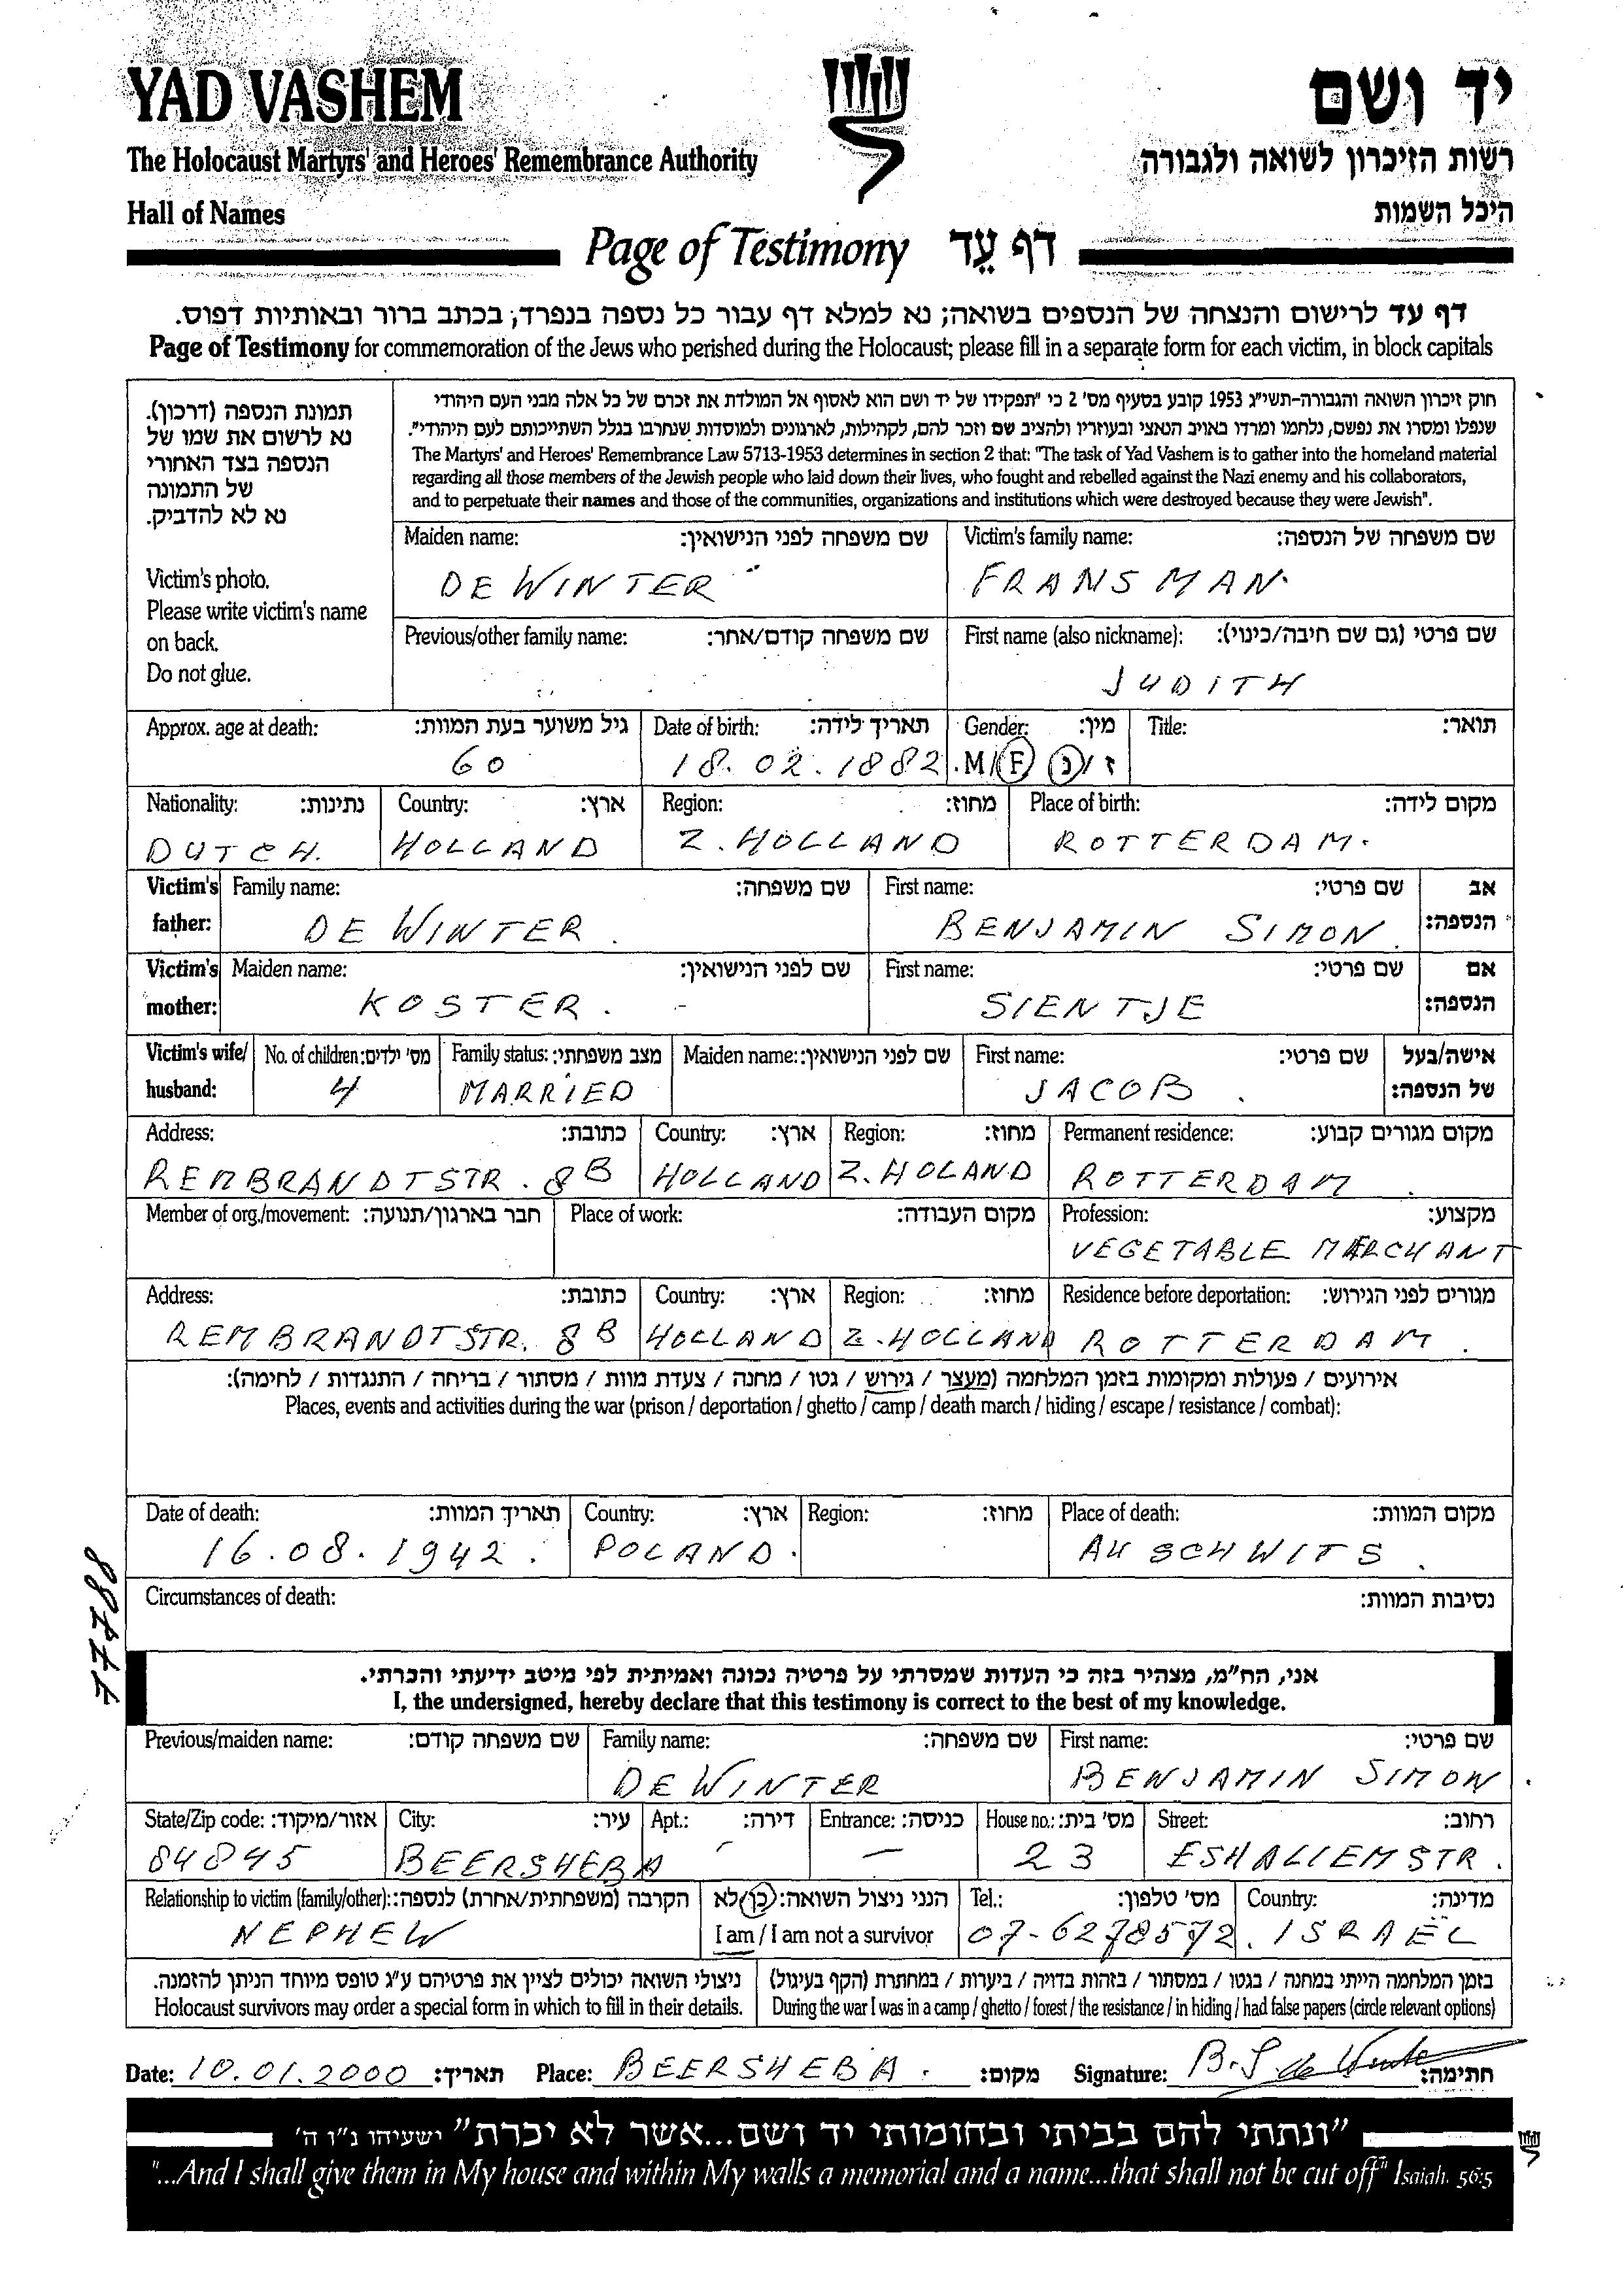 YAD VASHEM
יד ושם
The Holocaust Martyrs' and Heroes' Remembrance Authority
רשות הזיכרון לשואה ולגבורה
Hall of Names
היכל השמות
Page of Testimony דף עֵד
דף עד לרישום והנצחה של הנספים בשואה; נא למלא דף עבור כל נספה בנפרד, בכתב ברור ובאותיות דפוס.
Page of Testimony for commemoration of the Jews who perished during the Holocaust; please fill in a separate form for each victim, in block capitals
תמונת הנספה (דרכון).
נא לרשום את שמו של
הנספה בצד האחורי
של התמונה
נא לא להדביק.
Victim's photo.
Please write victim's name
on back.
Do not glue.
חוק זיכרון השואה והגבורה-תשי״ג 1953 קובע בסעיף מס' 2 כי "תפקידו של יד ושם הוא לאסוף אל המולדת את זכרם של כל אלה מבני העם היהודי
שנפלו ומסרו את נפשם, נלחמו ומרדו באויב הנאצי ובעוזריו ולהציב שם וזכר להם, לקהילות, לארגונים ולמוסדות שנחרבו בגלל השתייכותם לעם היהודי".
The Martyrs' and Heroes' Remembrance Law 5713-1953 determines in section 2 that: "The task of Yad Vashem is to gather into the homeland material
regarding all those members of the Jewish people who laid down their lives, who fought and rebelled against the Nazi enemy and his collaborators,
and to perpetuate their names and those of the communities, organizations and institutions which were destroyed because they were Jewish".
Maiden name: שם משפחה לפני הנישואין: Victim's family name: שם משפחה של הנספה:
DE WINTER FRANSMAN
Previous/other family name: שם משפחה קודם/אחר: First name (also nickname): שם פרטי (גם שם חיבה/כינוי):
JUDITH
Approx. age at death: גיל משוער בעת המוות: Date of birth: תאריך לידה: Gender: מין: Title: תואר:
60 18.02.1882 M/F ז/נ
Nationality: נתינות: Country: ארץ: Region: מחוז: Place of birth: מקום לידה:
DUTCH. HOLLAND Z. HOLLAND ROTTERDAM.
Victim's Family name: שם משפחה: First name: שם פרטי: אב
father: DE WINTER. BENJAMIN SIMON. הנספה:
Victim's Maiden name: שם לפני הנישואין: First name: שם פרטי: אם
mother: KOSTER. SIENTJE הנספה:
Victim's wife/ No. of children: מס' ילדים: Family status: מצב משפחתי: Maiden name: שם לפני הנישואין: First name: שם פרטי: אישה/בעל
husband: 4 MARRIED JACOB. של הנספה:
Address: כתובת: Country: ארץ: Region: מחוז: Permanent residence: מקום מגורים קבוע:
REMBRANDTSTR. 8B HOLLAND Z. HOLAND ROTTERDAM.
Member of org./movement: חבר בארגון/תנועה: Place of work: מקום העבודה: Profession: מקצוע:
VEGETABLE MERCHANT
Address: כתובת: Country: ארץ: Region: מחוז: Residence before deportation: מגורים לפני הגירוש:
REMBRANDTSTR. 8B HOLLAND Z. HOLLAND ROTTERDAM.
אירועים / פעולות ומקומות בזמן המלחמה (מעצר / גירוש / גטו / מחנה / צעדת מוות / מסתור / בריחה / התנגדות / לחימה):
Places, events and activities during the war (prison / deportation / ghetto / camp / death march / hiding / escape / resistance / combat):
Date of death: תאריך המוות: Country: ארץ: Region: מחוז: Place of death: מקום המוות:
16.08.1942. POLAND. AUSCHWITS.
Circumstances of death: נסיבות המוות:
77788
אני, הח"מ, מצהיר בזה כי העדות שמסרתי על פרטיה נכונה ואמיתית לפי מיטב ידיעתי והכרתי.
I, the undersigned, hereby declare that this testimony is correct to the best of my knowledge.
Previous/maiden name: שם משפחה קודם: Family name: שם משפחה: First name: שם פרטי:
DE WINTER BENJAMIN SIMON.
State/Zip code: אזור/מיקוד: City: עיר: Apt.: דירה: Entrance: כניסה: House no.: מס' בית: Street: רחוב:
84845 BEERSHEBA - — 23 ESHALIEMSTR.
Relationship to victim (family/other): הקרבה (משפחתית/אחרת) לנספה: הנני ניצול השואה: כן/לא Tel.: מס' טלפון: Country: מדינה:
NEPHEW I am / I am not a survivor 07-6278572. ISRAËL
ניצולי השואה יכולים לציין את פרטיהם ע"ג טופס מיוחד הניתן להזמנה. בזמן המלחמה הייתי במחנה / בגטו / במסתור / בזהות בדויה / ביערות / במחתרת (הקף בעיגול)
Holocaust survivors may order a special form in which to fill in their details. During the war I was in a camp / ghetto / forest / the resistance / in hiding / had false papers (circle relevant options)
Date: 10.01.2000 תאריך: Place: BEERSHEBA. מקום: Signature: B.S. de Winter חתימה:
"ונתתי להם בביתי ובחומותי יד ושם...אשר לא יכרת" ישעיהו נ"ו ה'
"...And I shall give them in My house and within My walls a memorial and a name...that shall not be cut off" Isaiah. 56:5